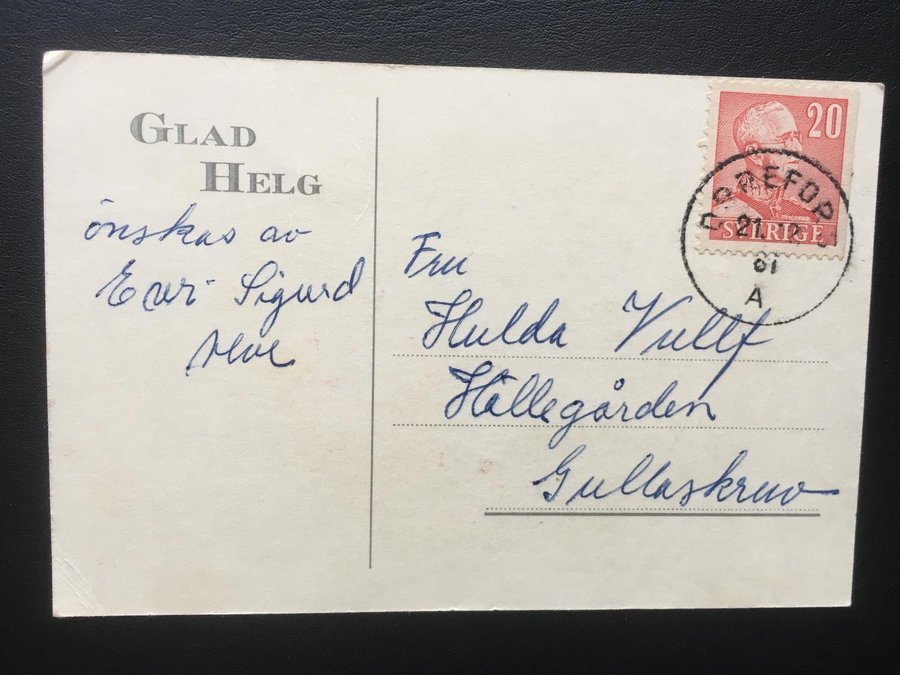 GLAD
HELG
önskas av
Sigurd
20
SVERIGE
21.12
61
A
Fru
Hulda Vullf
Hällegården
Gullaskruv